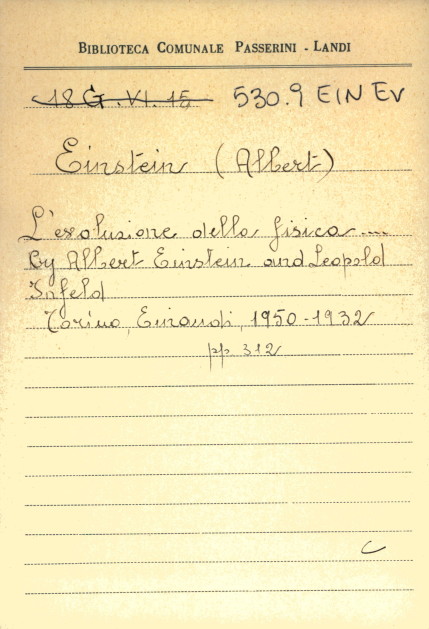 BIBLIOTECA COMUNALE PASSERINI - LANDI
18 G. VI. 15 530.9 EIN EV
Einstein (Albert)
L'evoluzione della fisica ....
By Albert Einstein and Leopold
Infeld
Torino, Einaudi, 1950-1932
pp 312
C